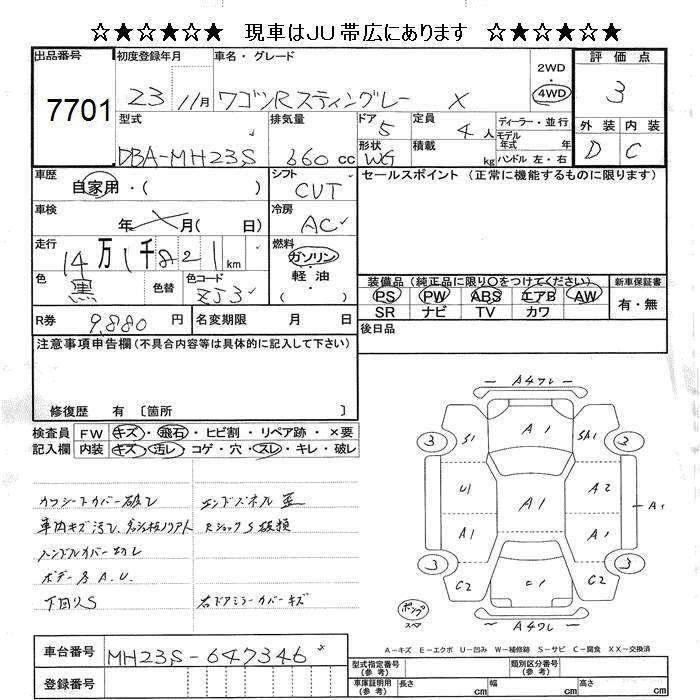 ☆★☆★☆★ 現車はJU帯広にあります ☆★☆★☆★
出品番号 初度登録年月 車名・グレード 2WD 評価点
7701 23 11月 ワゴンRスティングレー X ・ 4WD 3
型式 排気量 ドア 5 定員 4人 ディーラー・並行 外装 内装
DBA-MH23S 660cc 形状 WG 積載 kg モデル年式 年 D C
ハンドル 左・右
車歴 自家用・( ) シフト CVT セールスポイント (正常に機能するものに限ります)
車検 年 月( 日) 冷房 AC
走行 14万1千821km 燃料 ガソリン・軽油・( )
色 黒 色替 色コード ZJ3
装備品 (純正品に限り○をつけてください) 新車保証書
PS PW ABS エアB AW 有・無
SR ナビ TV カワ
R券 9,880円 名変期限 月 日 後日品
注意事項申告欄 (不具合内容等は具体的に記入して下さい)
修復歴 有 〔箇所 〕
検査員記入欄 FW キズ・飛石・ヒビ割・リペア跡・×要
内装 キズ・汚レ・コゲ・穴・スレ・キレ・破レ
カウシートカバー破レ エンドパネル歪
車内キズ汚レ、 RショックS破損
ハンドルカバー切レ
ボデー各A.U.
下回りS 右ドアミラーカバーキズ
A4ワレ
3 S1 A1 SA1 3
U1 A1 A2 A1
A1 A1
3 C2 C1 C2 3
ポンプ スペア
A4ワレ
A-キズ E-エクボ U-凹み W-補修跡 S-サビ C-腐食 XX-交換済
車台番号 MH23S-647346
登録番号
型式指定番号(参考) 類別区分番号(参考)
車庫証明用(参考) 長さ cm 幅 cm 高さ cm